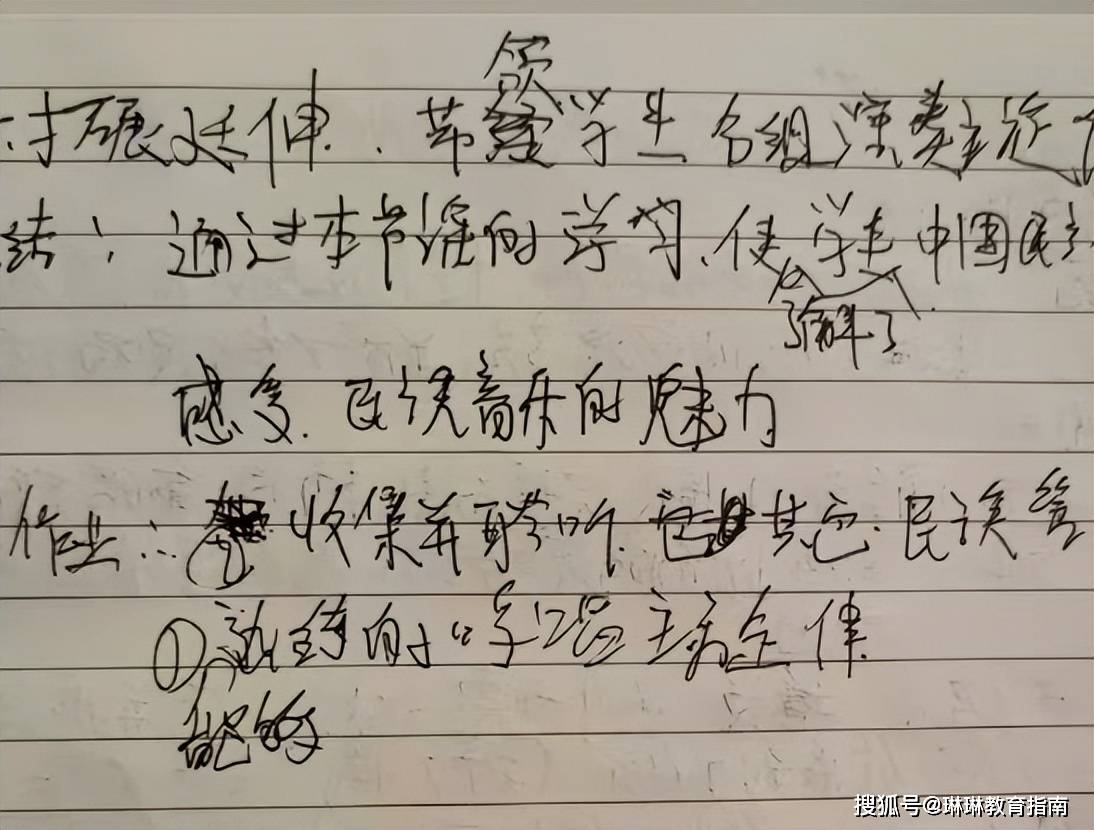 展延伸、带领学生分组演奏主旋
结：通过本节课的学习、使学生了解了中国民
感受民族音乐的魅力
作业：收集并聆听其它民族
①能够熟练的哼唱主旋律
搜狐号@琳琳教育指南